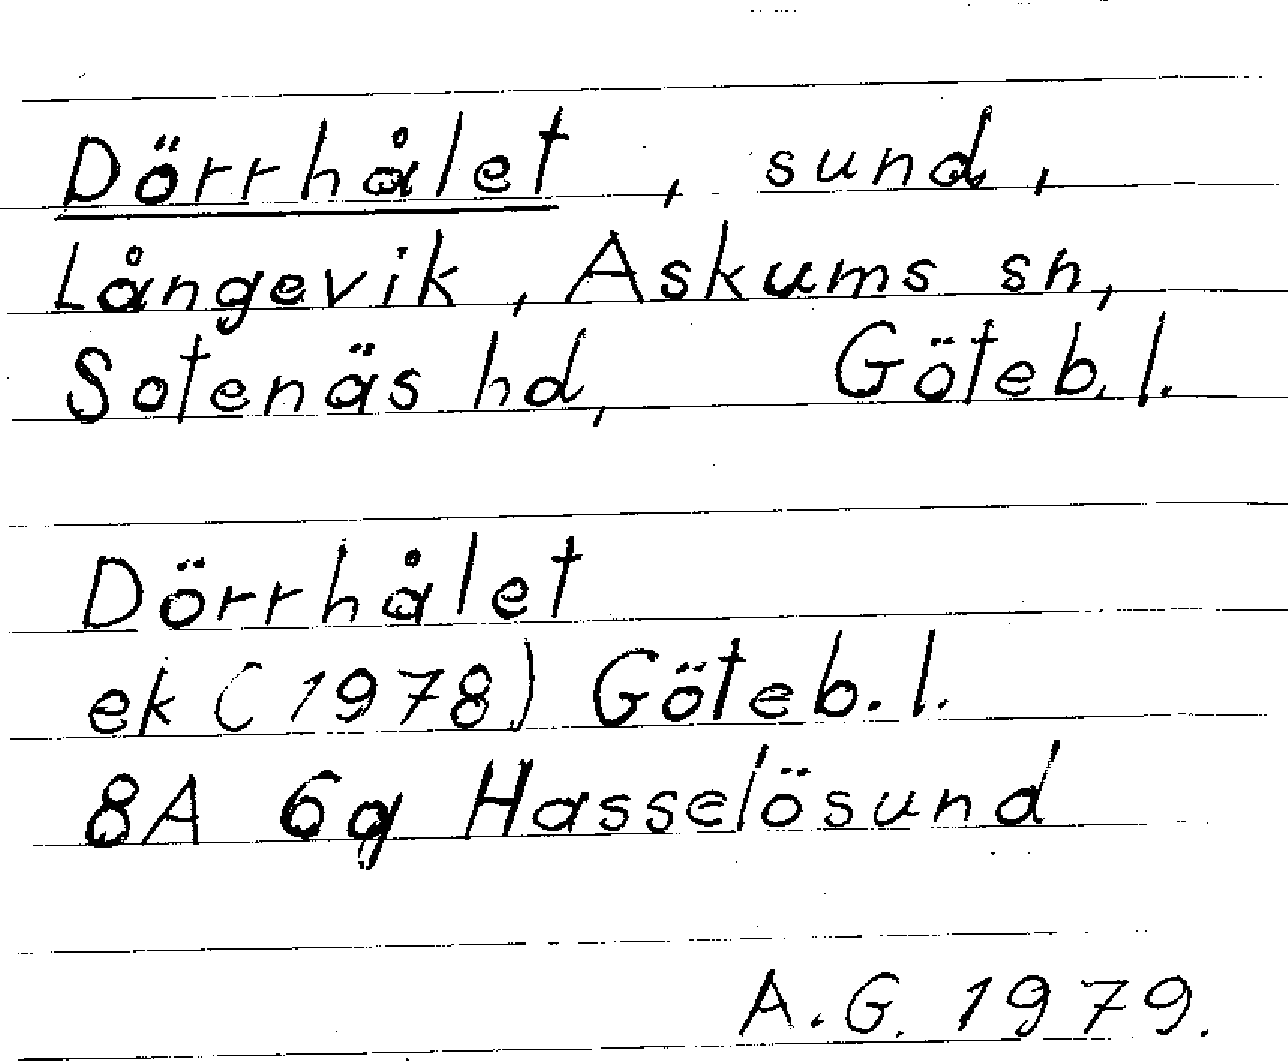 Dörrhålet, sund,
Långevik, Askums sn,
Sotenäs hd, Göteb. l.
Dörrhålet
ek (1978) Göteb. l.
8A 6g Hasselösund
A.G. 1979.